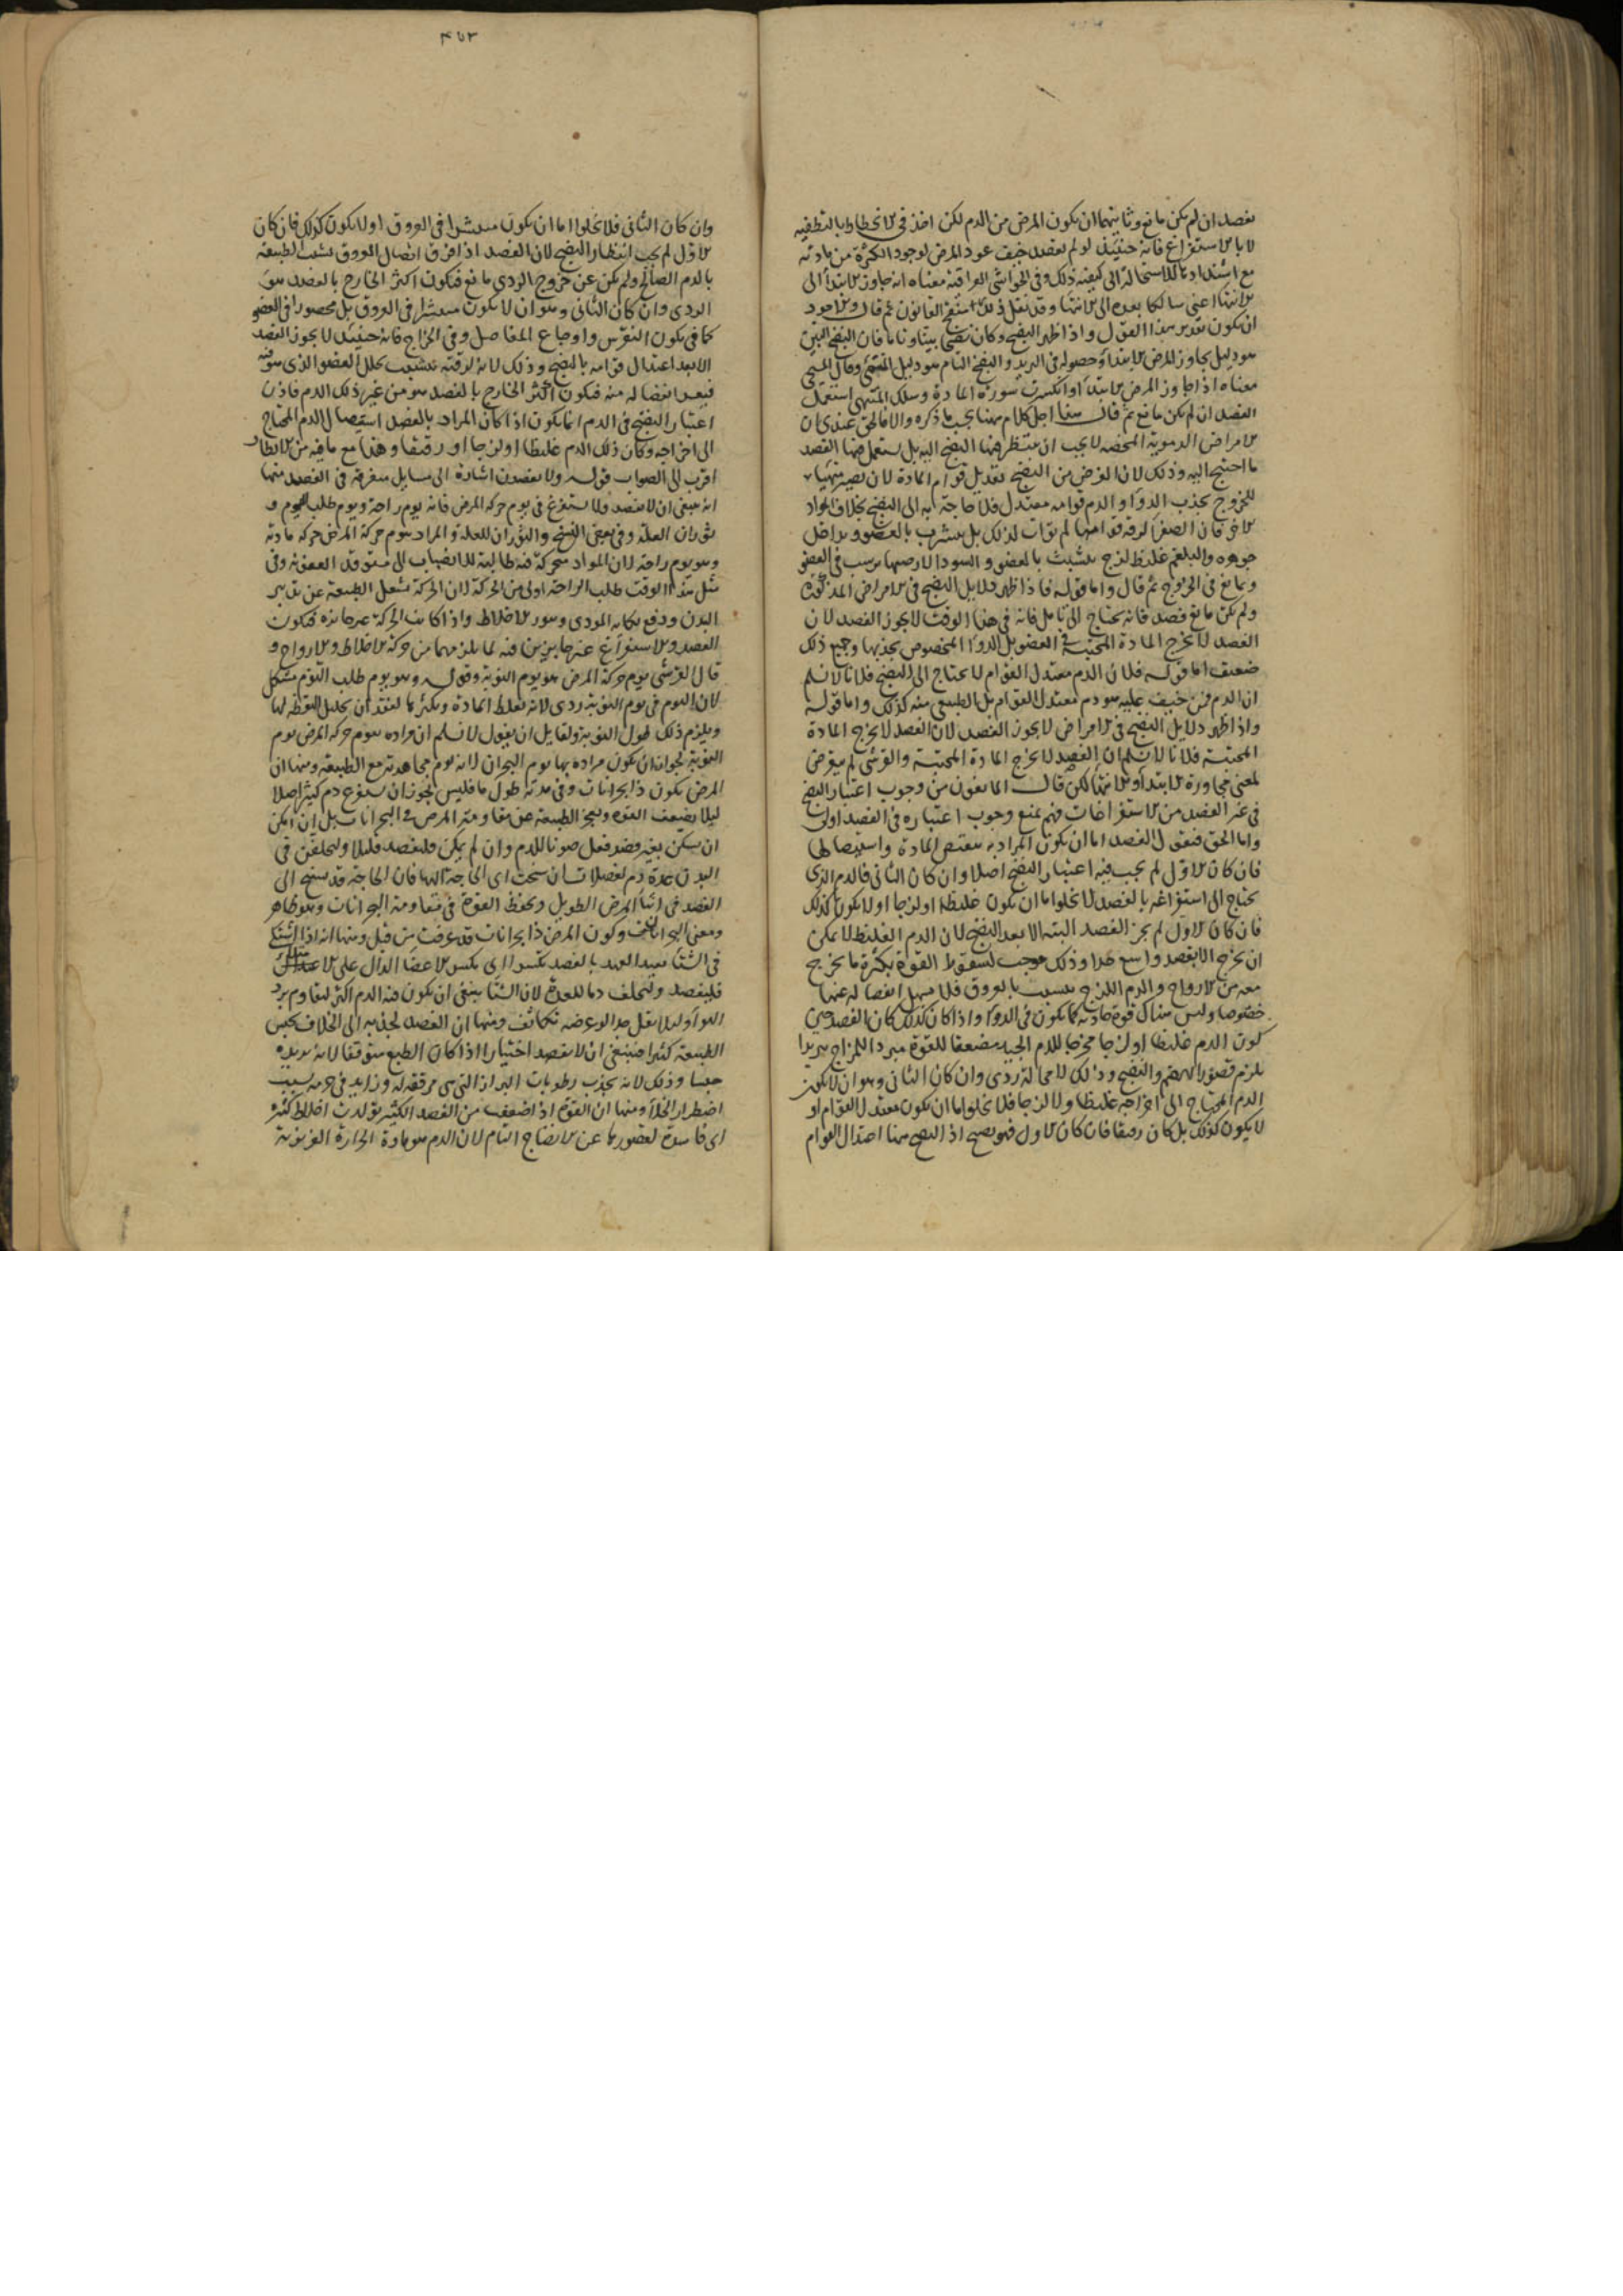 يفصد ان لم يكن مانع وثانيتهما ان يكون المرض من الدم لكن اخذ في الانحطاط اما بالتطفيه
لا بالاستفراغ فانه حينئذ لو لم يفصد خيف عود المرض لوجود الكثرة من مادته
مع استعدادها للاستحالة الى كيفيته ذلك وفي الحواشي العراقية معناه انه جاوز الابتدا الى
الانتها اعني سالكا بعده الى الانتها وقد نقل ذلك ثم قال والاجود
ان يكون تقدير هذا القول واذا ظهر النضج وكان نضجا بينا وتاما فان النضج البين
هو دليل تجاوز المرض الابتدا وحصوله في التزيد والنضج التام هو دليل المنتهى وقال المسيحي
معناه اذا جاوز المرض الابتدا او انكسرت سورة المادة وسلك المنتهى استعمل
الفصد ان لم يكن مانع ثم قال كلام ههنا بحسب ما ذكره والا فالحق عندي ان
الامراض الدموية المحضه لا يجب ان ينتظر فيها النضج البته بل يستعمل فيها الفصد
ما احتيج اليه وذلك لان الغرض من النضج تعديل قوام المادة لان تصير متهيأة
للخروج بجذب الدوا والدم قوامه معتدل فلا حاجة به الى النضج بخلاف المواد
الاخر فان الصفرا لرقة قوامها لم توات لذلك بل تتشرب بالعضو وتداخل
جوهره والبلغم غليظ لزج يتشبث بالعضو والسودا لارضيتها ترسب في العضو
وتمانع في الخروج ثم قال واما قوله فاذا ظهر دلايل النضج في الامراض المذكورة
ولم يكن مانع فصد فانه يحتاج الى تامل فانه في هذا الوقت لا يجوز الفصد لان
الفصد لا يخرج المادة المحتبسة في العضو بل الدوا المخصوص بجذبها وجميع ذلك
ضعيف اما قوله فلان الدم معتدل القوام لا يحتاج الى النضج فلانا لا نسلم
ان الدم هو دم معتدل القوام بل الطبيعي منه كذلك واما قوله
واذا ظهر دلايل النضج في الامراض لا يجوز الفصد لان الفصد لا يخرج المادة
المحتبسة فلانا لا نسلم ان الفصد لا يخرج المادة المحتبسة والقرشي لم يتعرض
لمعنى مجاوزة الابتدا والانتها لكن قال المانعون من وجوب اعتبار النضج
في غير الفصد من الاستفراغات فهم بمنع وجوب اعتباره في الفصد اولى
واما الحق فنقول الفصد اما ان يكون المراد به تنقيص المادة واستيصالها
فان كان الاول لم يجب فيه اعتبار النضج اصلا وان كان الثاني فالدم الذي
يحتاج الى استفراغه بالفصد لا يخلو اما ان يكون غليظا او لزجا او لا يكون كذلك
فان كان الاول لم يجز الفصد البته الا بعد النضج لان الدم الغليظ لا يمكن
ان يخرج الا بفصد واسع جدا وذلك موجب لسقوط القوة بكثرة ما يخرج
معه من الارواح والدم اللزج يتشبث بالعروق فلا يسهل انفصاله عنها
خصوصا وليس هناك قوة جاذبة كما يكون في الدوا واذا كان كذلك كان الفصد حين
كون الدم غليظا او لزجا مخرجا للدم الجيد مضعفا للقوة مبردا للمزاج تبريدا
يلزم قصور الهضم والنضج وذلك لا محالة ردي وان كان الثاني وهو ان لا يكون
الدم المحتاج الى اخراجه غليظا ولا لزجا فلا يخلوا اما ان يكون معتدل القوام او
لا يكون كذلك بل كان رقيقا فان كان الاول فهو نضيج اذ النضج ههنا اعتدال القوام
٤٥٣
وان كان الثاني فلا يخلوا اما ان يكون منتشرا في العروق او لا يكون كذلك فان كان
الاول لم يجب انتظار النضج لان الفصد اذا فرق اتصال العروق تشبثت الطبيعة
بالدم الصالح ولم يكن عن خروج الردي مانع فيكون اكثر الخارج بالفصد هو
الردي وان كان الثاني وهو ان لا يكون منتشرا في العروق بل محصورا في العضو
كما في يكون النقرس واوجاع المفاصل وفي الخراج فانه حينئذ لا يجوز الفصد
الا بعد اعتدال قوامه بالنضج وذلك لانه لرقته تشبث بخلل العضو الذي هو فيه
فيعسر انفصاله منه فيكون اكثر الخارج بالفصد هو من غير ذلك الدم فاذن
اعتبار النضج في الدم انما يكون اذا كان المراد بالفصد استيصال الدم المحتاج
الى اخراجه وكان ذلك الدم غليظا او لزجا او رقيقا وهذا مع ما فيه من الانظار
اقرب الى الصواب قوله ولا يفصدن اشارة الى مسايل متفرقة في الفصد منها
انه ينبغي ان لا يفصد ولا يستفرغ في يوم حركة المرض فانه يوم راحة ويوم طلب النوم و
ثوران العلة وفي بعض النسخ والثوران للعلة والمراد بيوم حركة المرض حركة مادته
وهو يوم راحة لان المواد متحركة فيه طالبة للانصباب الى مستوقد العفونة وفي
مثل هذا الوقت طلب الراحة اولى من الحركة لان الحركة تشغل الطبيعة عن تدبير
البدن ودفع نكاية الموذي وتثور الاخلاط واذا كانت الحركة غير جايزة فيكون
الفصد والاستفراغ غير جايزين فيه لما يلزمهما من حركة الاخلاط والارواح و
قال القرشي يوم حركة المرض هو يوم النوبة وقوله وهو يوم طلب النوم مشكل
لان النوم في يوم النوبة ردي لانه يغلظ المادة ويكثرها لفقدان تحليل اليقظة لها
ويلزم ذلك طول النوبة ولقايل ان يقول لا نسلم ان مراده بيوم حركة المرض يوم
النوبة لجواز ان يكون مراده بها يوم البحران لانه يوم مجاهدته مع الطبيعة ومنها ان
المرض يكون ذا بحرانات وفي مدته طول ما فليس يجوز ان يستفرغ دم كثير اصلا
ليلا يضعف القوة ويعجز الطبيعة عن مقاومة المرض في البحرانات بل ان امكن
ان يسكن بغير فصد فعل صونا للدم وان لم يمكن فليفصد قليلا وليخلفن في
البدن عدة دم لفصدات ان سنحت اي الحاجة اليها فان الحاجة قد تسنح الى
الفصد في اثنا المرض الطويل ولحفظ القوة في مقاومة البحرانات وهو ظاهر
ومعنى البحرانات وكون المرض ذا بحرانات قد عرفت من قبل ومنها انه اذا اشتكى
في الشتا بعيد العهد بالفصد تكسرا اي تكسر الاعضا الدال على الامتلا
فليفصد وليخلف دما للعدة لان الشتا ينبغي ان يكون فيه الدم اكثر ليقاوم برد
الهوا وليلا يقل جدا لو عرضه تكاثف ومنها ان الفصد لجذبه الى الخلاف يحبس
الطبيعة كثيرا فينبغي ان لا يفصد اختيارا اذا كان الطبع متوقفا لانه يزيده
حبسا وذلك لانه يجذب رطوبات البراز التي هي مرققه له وزايد في جرمه بسبب
اضطرار الخلا ومنها ان القوة اذا ضعفت من الفصد الكثير تولدت اخلاط كثيرة
اي فاسدة لقصورها عن الانضاج التام لان الدم هو مادة الحرارة الغريزية